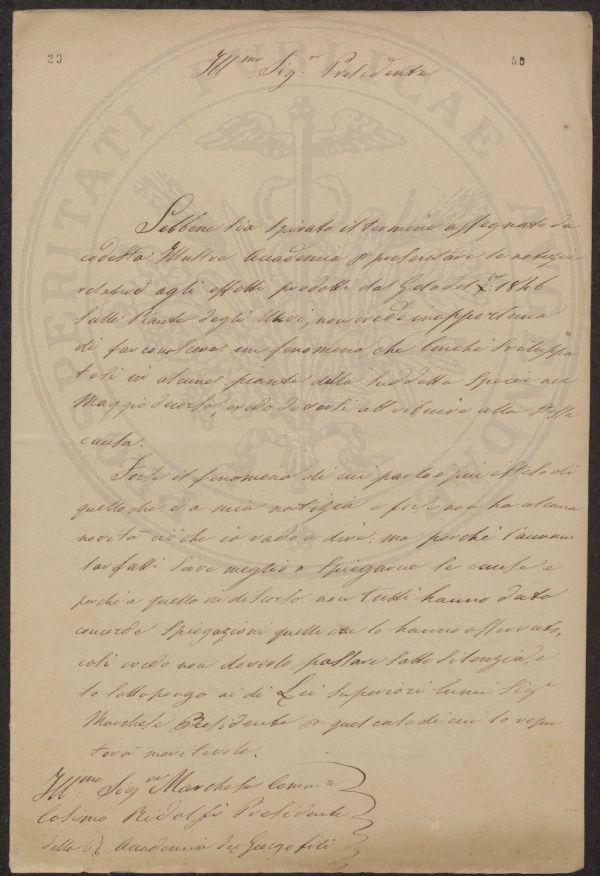 20
55
Ill.mo Sig.r Presidente
Sebbene sia spirato il termine assegnato da
codesta Illustre Accademia p presentare le notizie
relative agli effetti prodotti dal Gelo del X.re 1846
sulle Piante degli Ulivi, non credo inopportuno
di far conoscere un fenomeno, che anche sviluppa
tosi in alcune piante della suddetta specie nel
Maggio decorso, credo doversi attribuire alla stessa
causa.
Forse il fenomeno di cui parlo è più esteso di
quello che è a mia notizia e forse non ha alcuna
novità ciò che io vado a dire: ma perchè l'accumu
lar fatti serve meglio a spiegarne le cause e
perchè a quello in discorso non tutti hanno dato
concorde spiegazioni quelli che lo hanno osservato,
così credo non doverlo passare sotto silenzio, e
lo sottopongo ai di Lei superiori lumi Sig.r
Marchese Presidente p quel caso di cui lo repu
terà meritevole.
Ill.mo Sig.re Marchese Comm.e
Cosimo Ridolfi Presidente
della R. Accademia dei Georgofili
PUBLICAE
PROSPERITATI